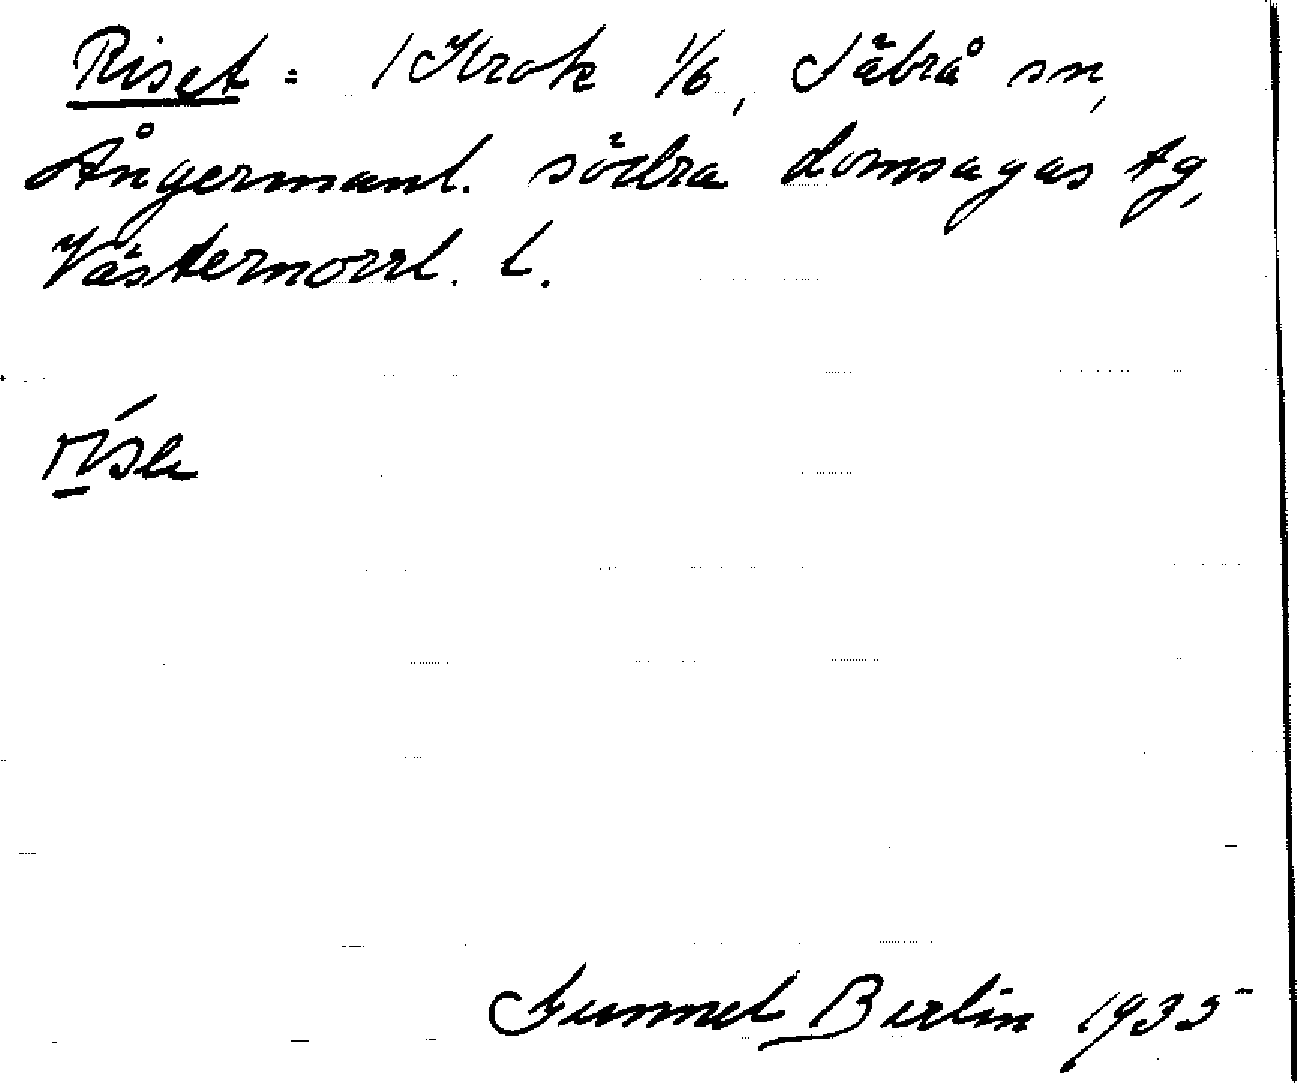 Riset = 1 Krok 1/6, Säbrå sn,
Ångermanl. södra domsagas tg,
Västernorrl. l.
Gunnel Berlin 1935